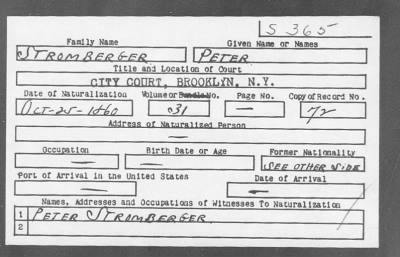 S 365
Family Name Given Name or Names
STROMBERGER PETER
Title and Location of Court
CITY COURT, BROOKLYN, N.Y.
Date of Naturalization Volume or Bundle No. Page No. Copy of Record No.
OCT-25-1860 031 — 72
Address of Naturalized Person
—
Occupation Birth Date or Age Former Nationality
— — SEE OTHER SIDE
Port of Arrival in the United States Date of Arrival
— —
Names, Addresses and Occupations of Witnesses To Naturalization
1 PETER STROMBERGER
2